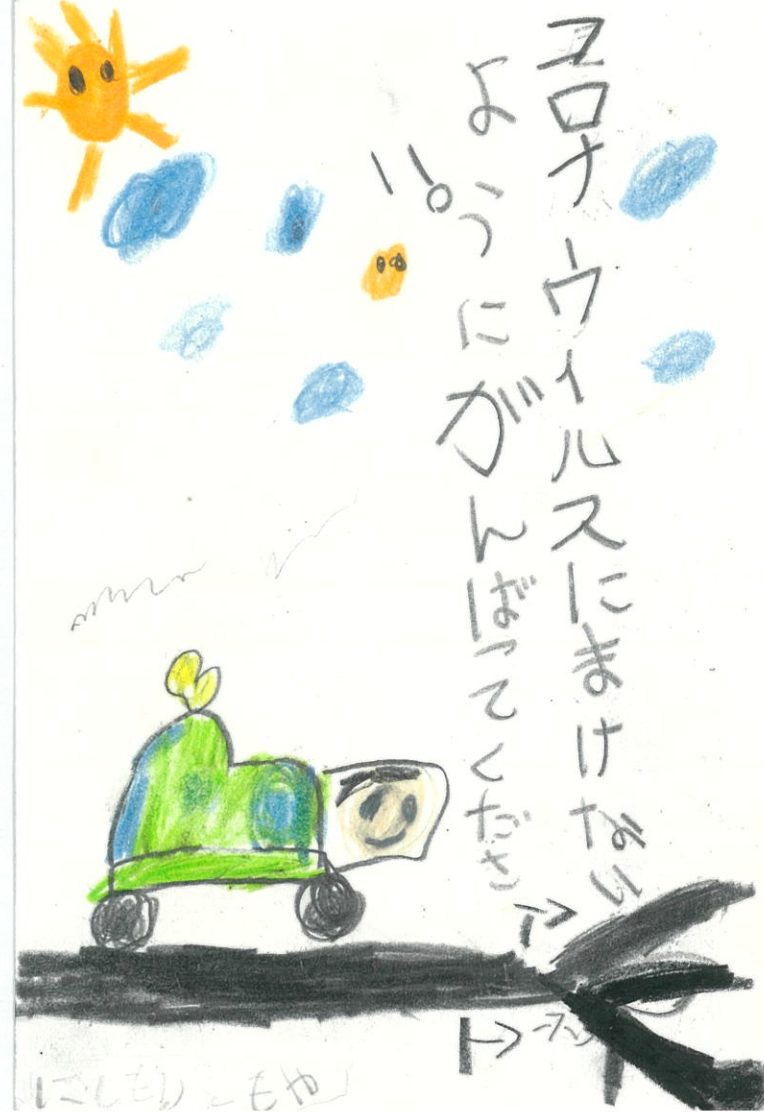 コロナウイルスにまけない
ようにがんばってくださ
い。
にしもり